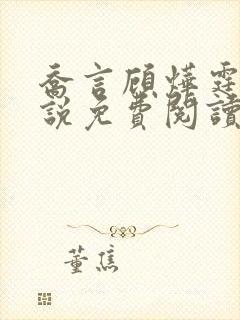 喬言顧燁霆
說免費閱讀
董焦